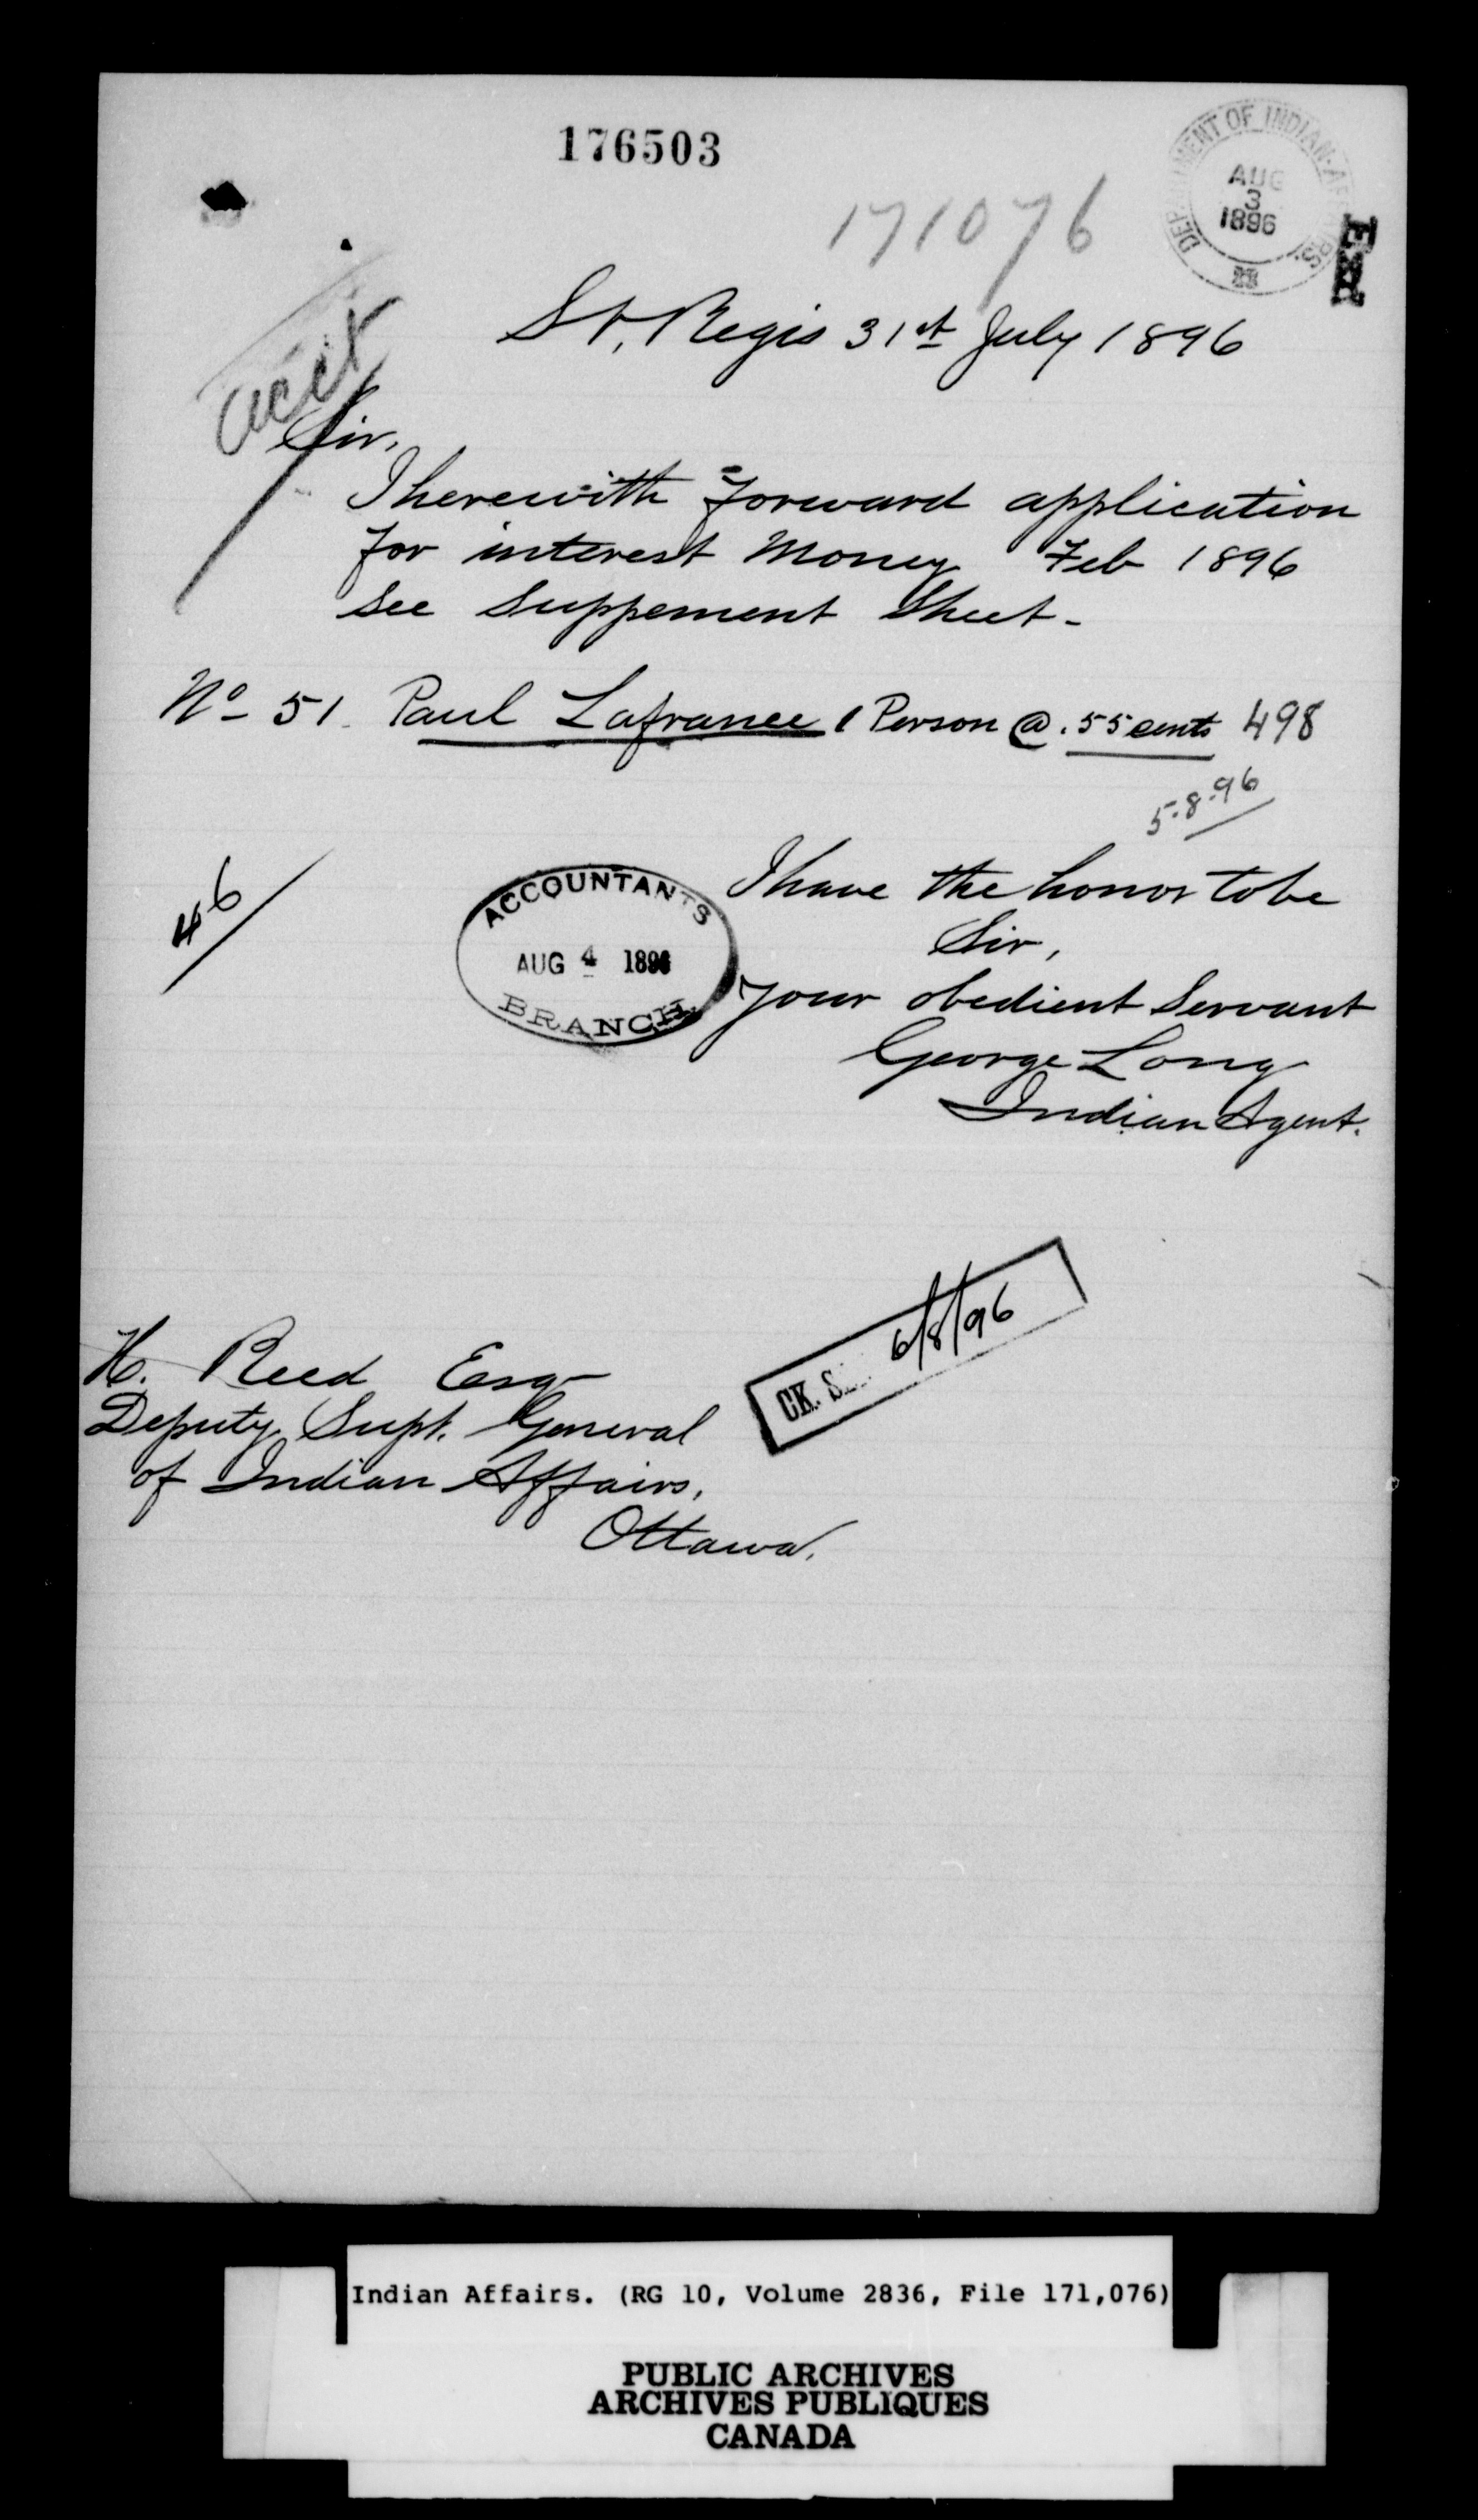 176503
171076
DEPARTMENT OF INDIAN AFFAIRS.
AUG
3
1896
St. Regis 31st July 1896
acct
Sir,
I herewith forward application
for interest Money Feb 1896
See Suppement Sheet-
No 51 Paul Lafrance 1 Person @ .55 cents 498
5-8-96
46
ACCOUNTANTS
AUG 4 1896
BRANCH
I have the honor to be
Sir,
Your obedient Servant
George Long
Indian Agent.
CK. 6/8/96
H. Reed Esq
Deputy Supt. General
of Indian Affairs,
Ottawa.
Indian Affairs. (RG 10, Volume 2836, File 171,076)
PUBLIC ARCHIVES
ARCHIVES PUBLIQUES
CANADA